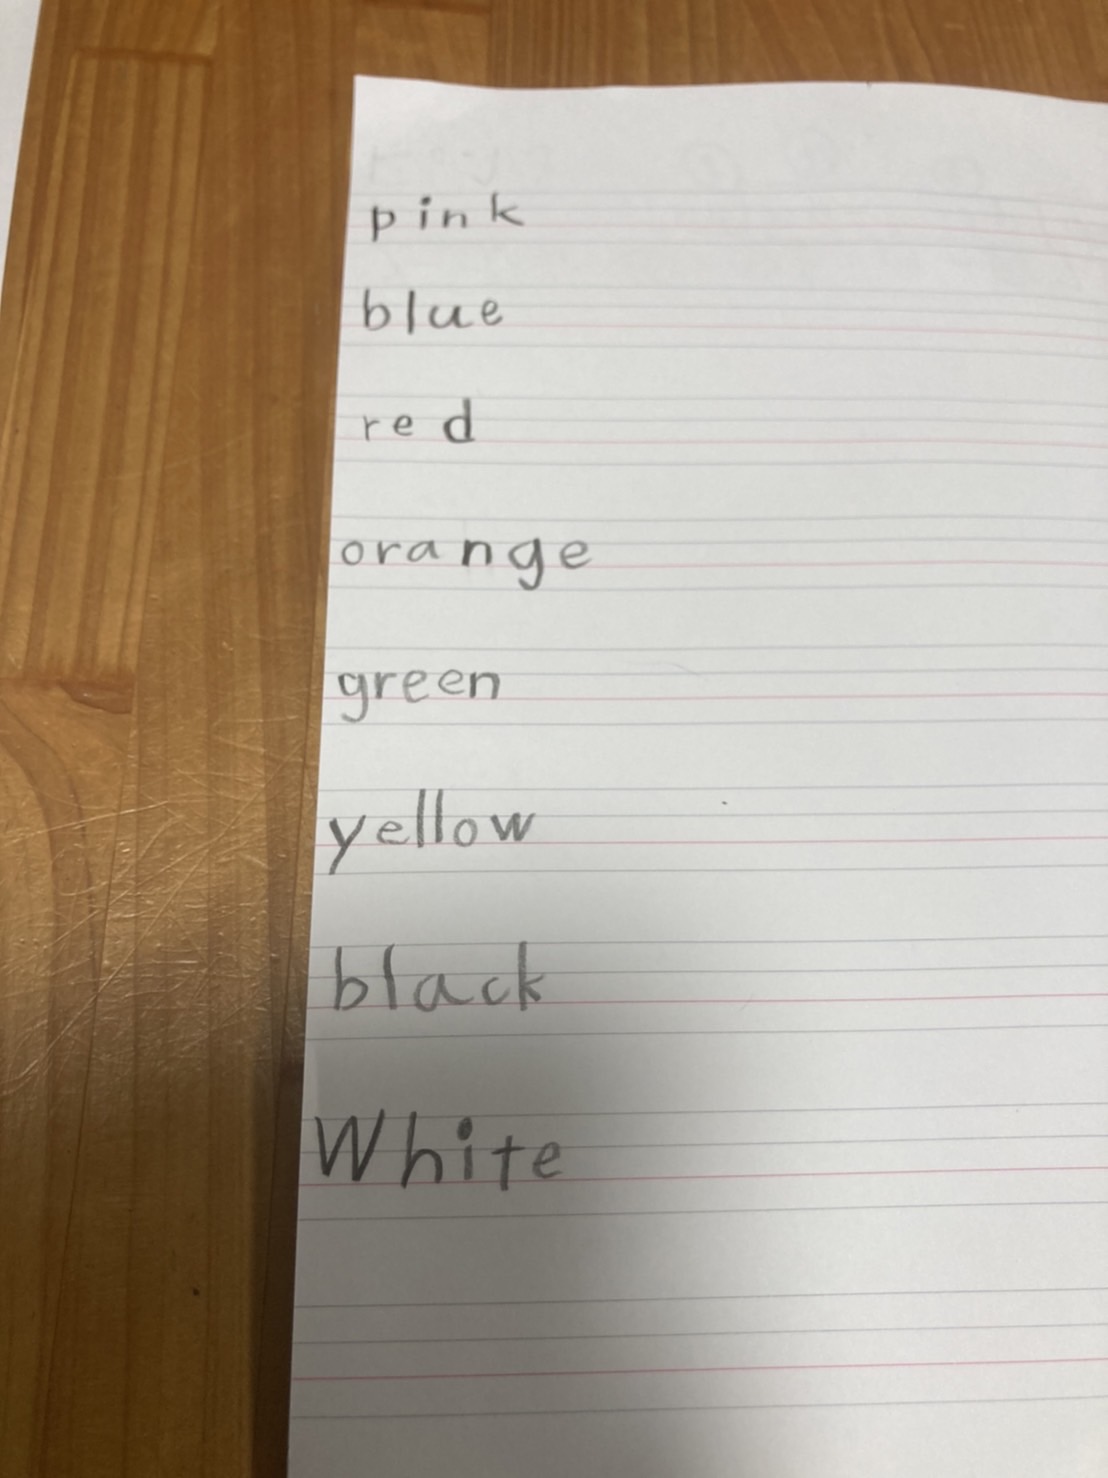 pink
blue
red
orange
green
yellow
black
White